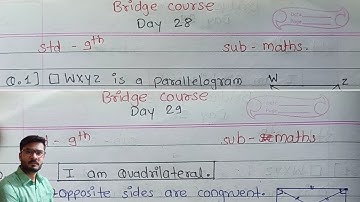 Bridge course
Day 28
std - 9th
sub - maths.
Q.1] □ WXYZ is a parallelogram
W
Z
Bridge course
Day 29
- 9th
sub - maths
I am Quadrilateral.
Opposite sides are congruent.